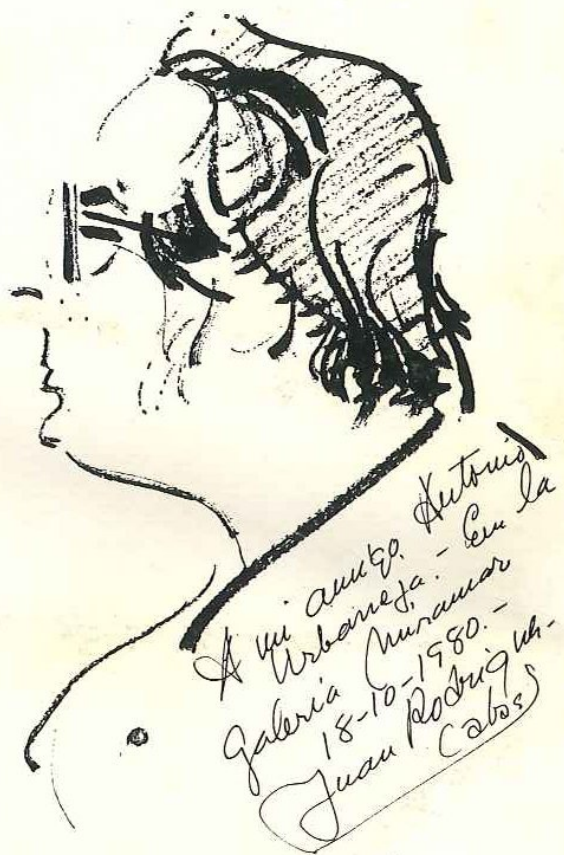 A mi amigo Antonio
Urbaneja. - En la
Galería Miramar
18-10-1980. -
Juan Rodríguez-
Cabas